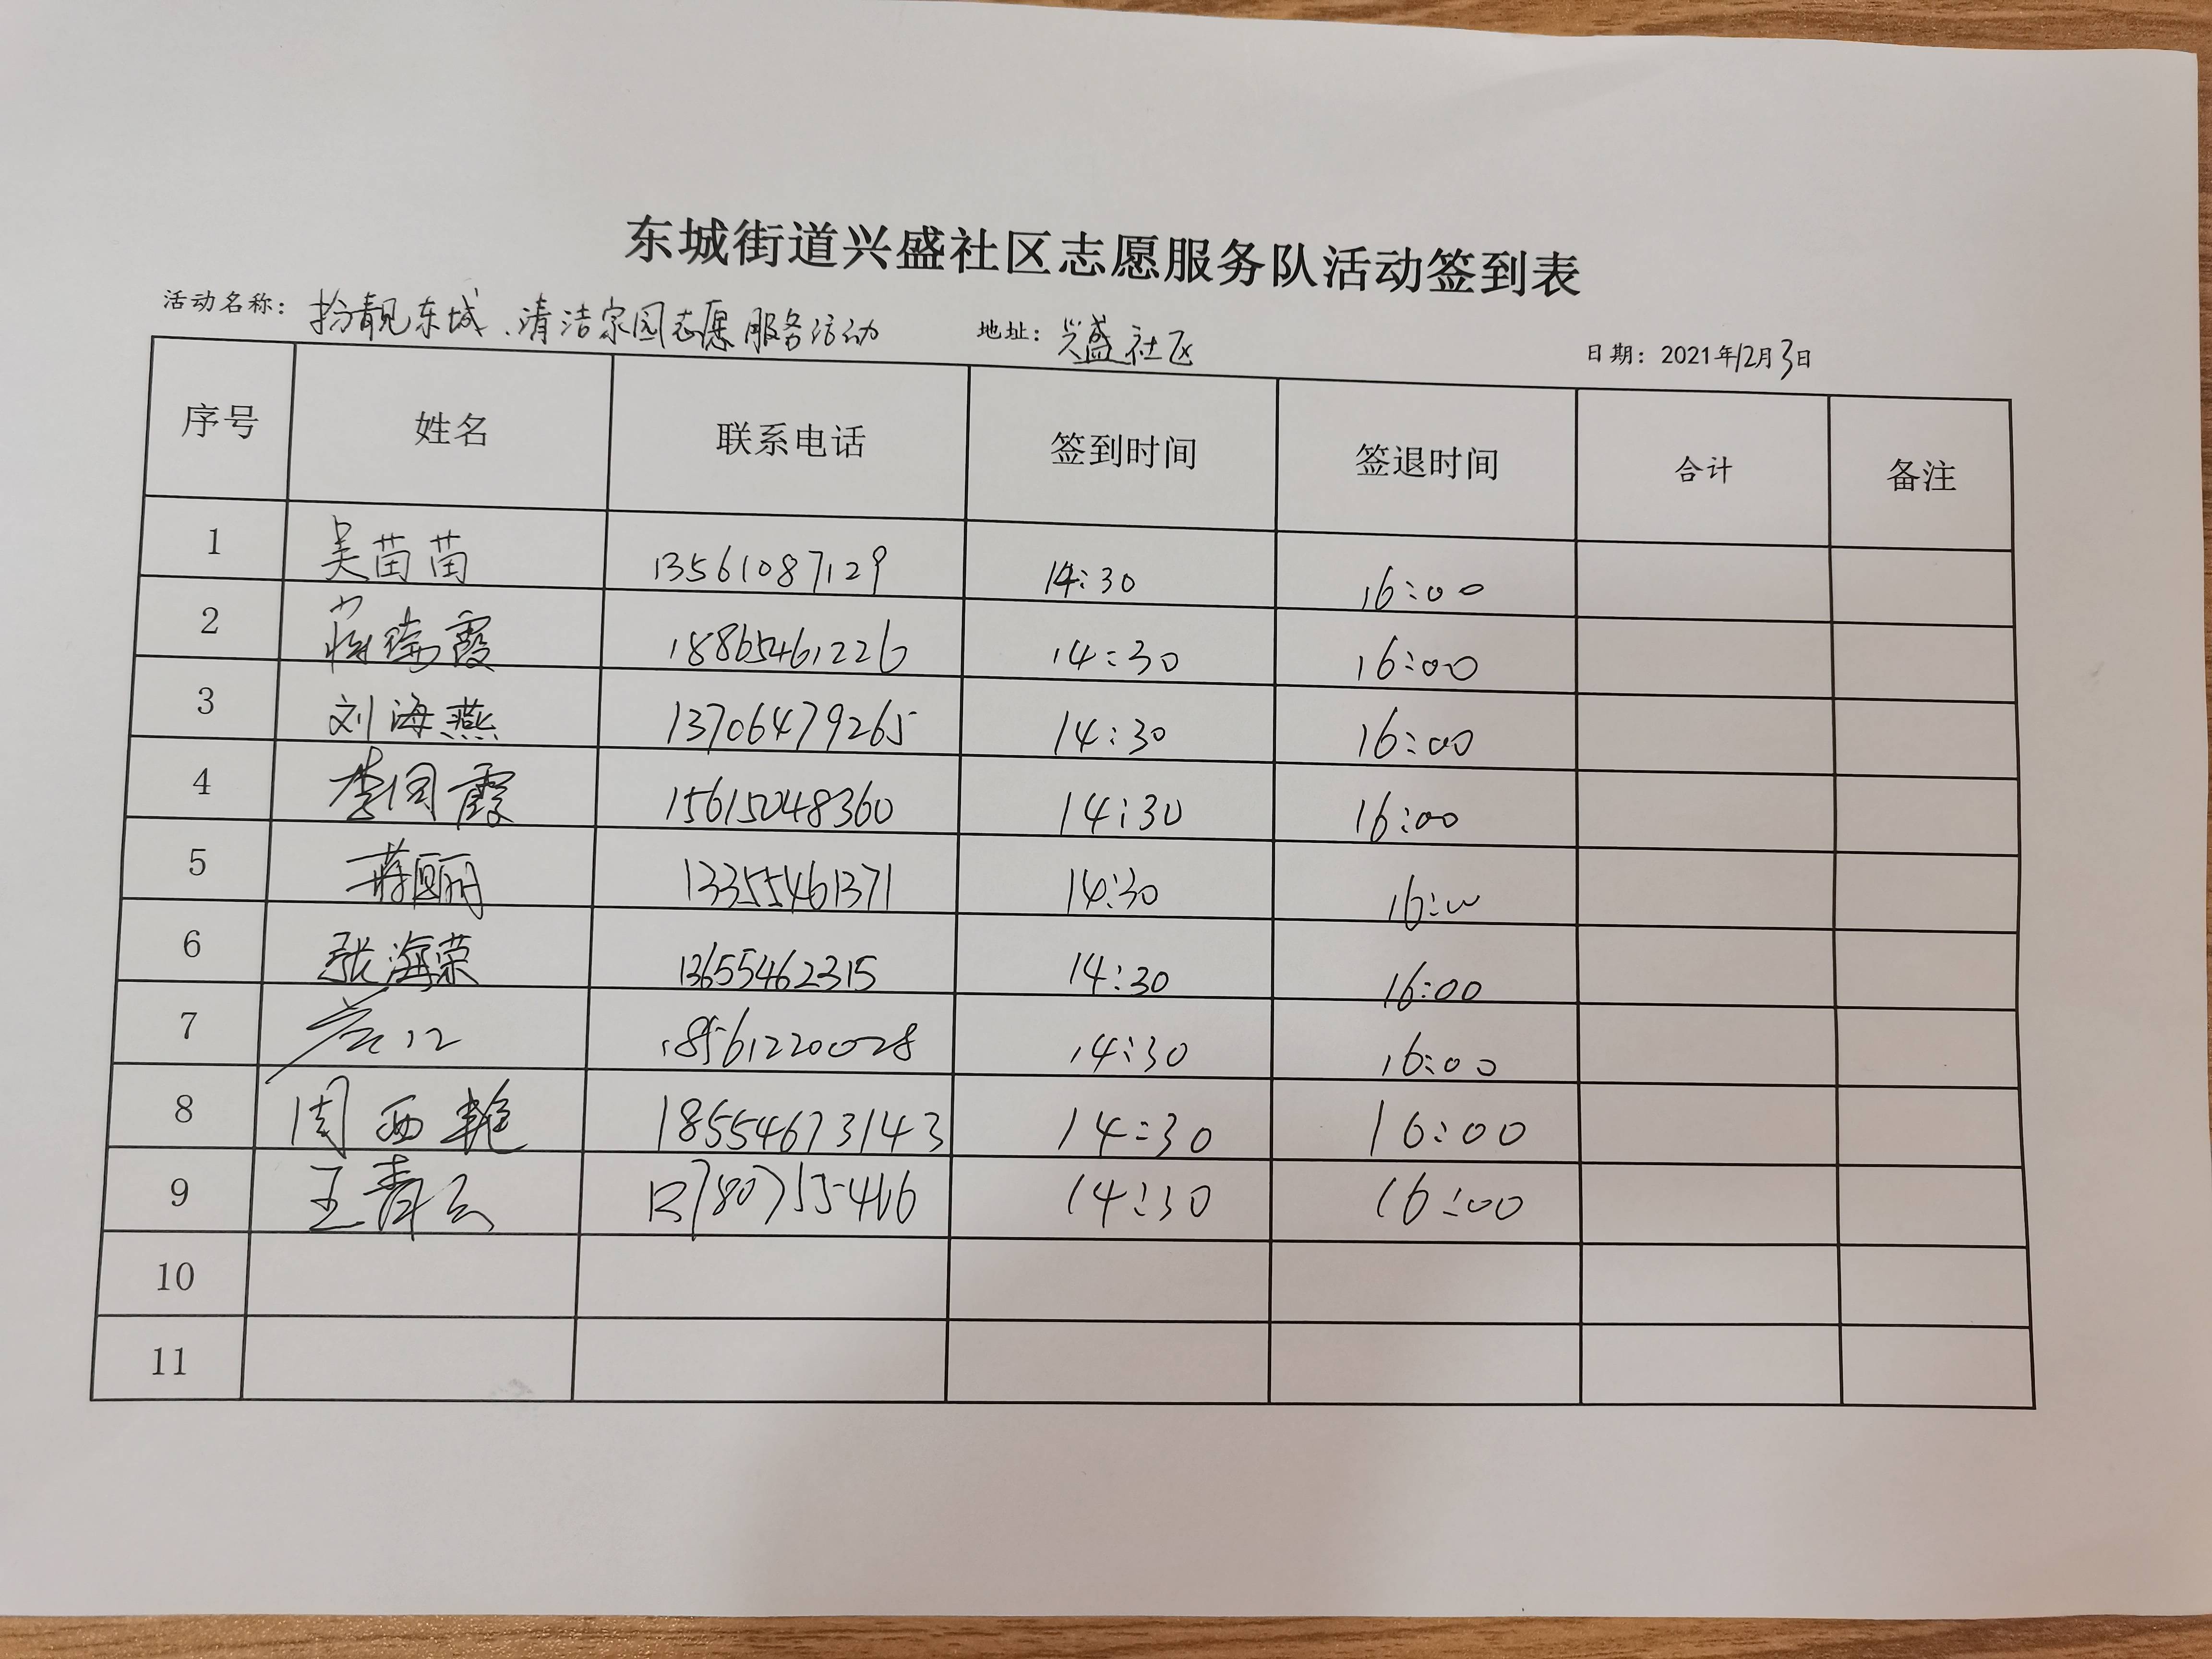 东城街道兴盛社区志愿服务队活动签到表
活动名称：扮靓东城、清洁家园志愿服务活动 地址：兴盛社区 日期：2021年12月3日
序号 姓名 联系电话 签到时间 签退时间 合计 备注
1 吴苗苗 13561087129 14:30 16:00
2 蒋瑞霞 18865461226 14:30 16:00
3 刘海燕 13706479265 14:30 16:00
4 李同霞 15615048360 14:30 16:00
5 蒋丽 13355461371 14:30 16:00
6 张海荣 13655462315 14:30 16:00
7 18561220028 14:30 16:00
8 周西艳 18554673143 14:30 16:00
9 王青云 14:30 16:00
10
11